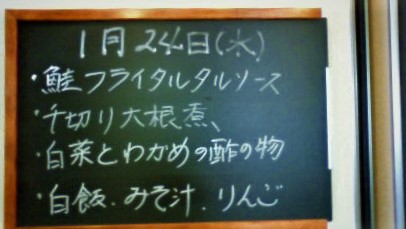 1月24日(水)
・鮭フライタルタルソース
・千切り大根煮、
・白菜とわかめの酢の物
・白飯.みそ汁.りんご